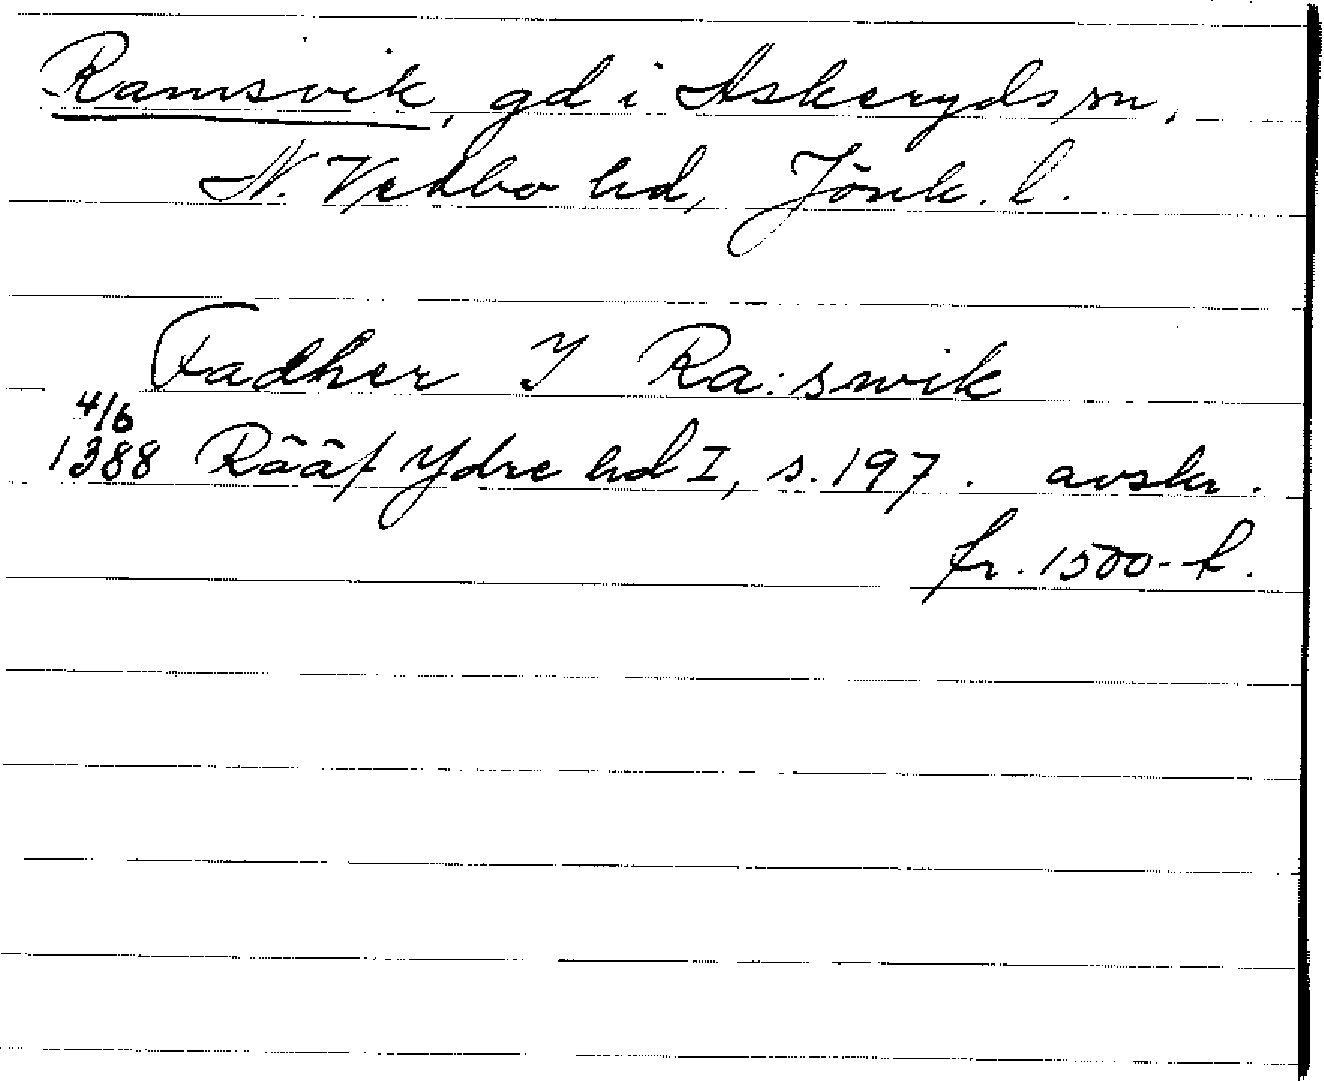 Ramsvik, gd i Askeryds sn,
N. Vedbo hd, Jönk. l.
Fadher J Ra:swik
4/6
1388 Rääf Ydre hd I, s. 197. avskr.
fr. 1500-t.